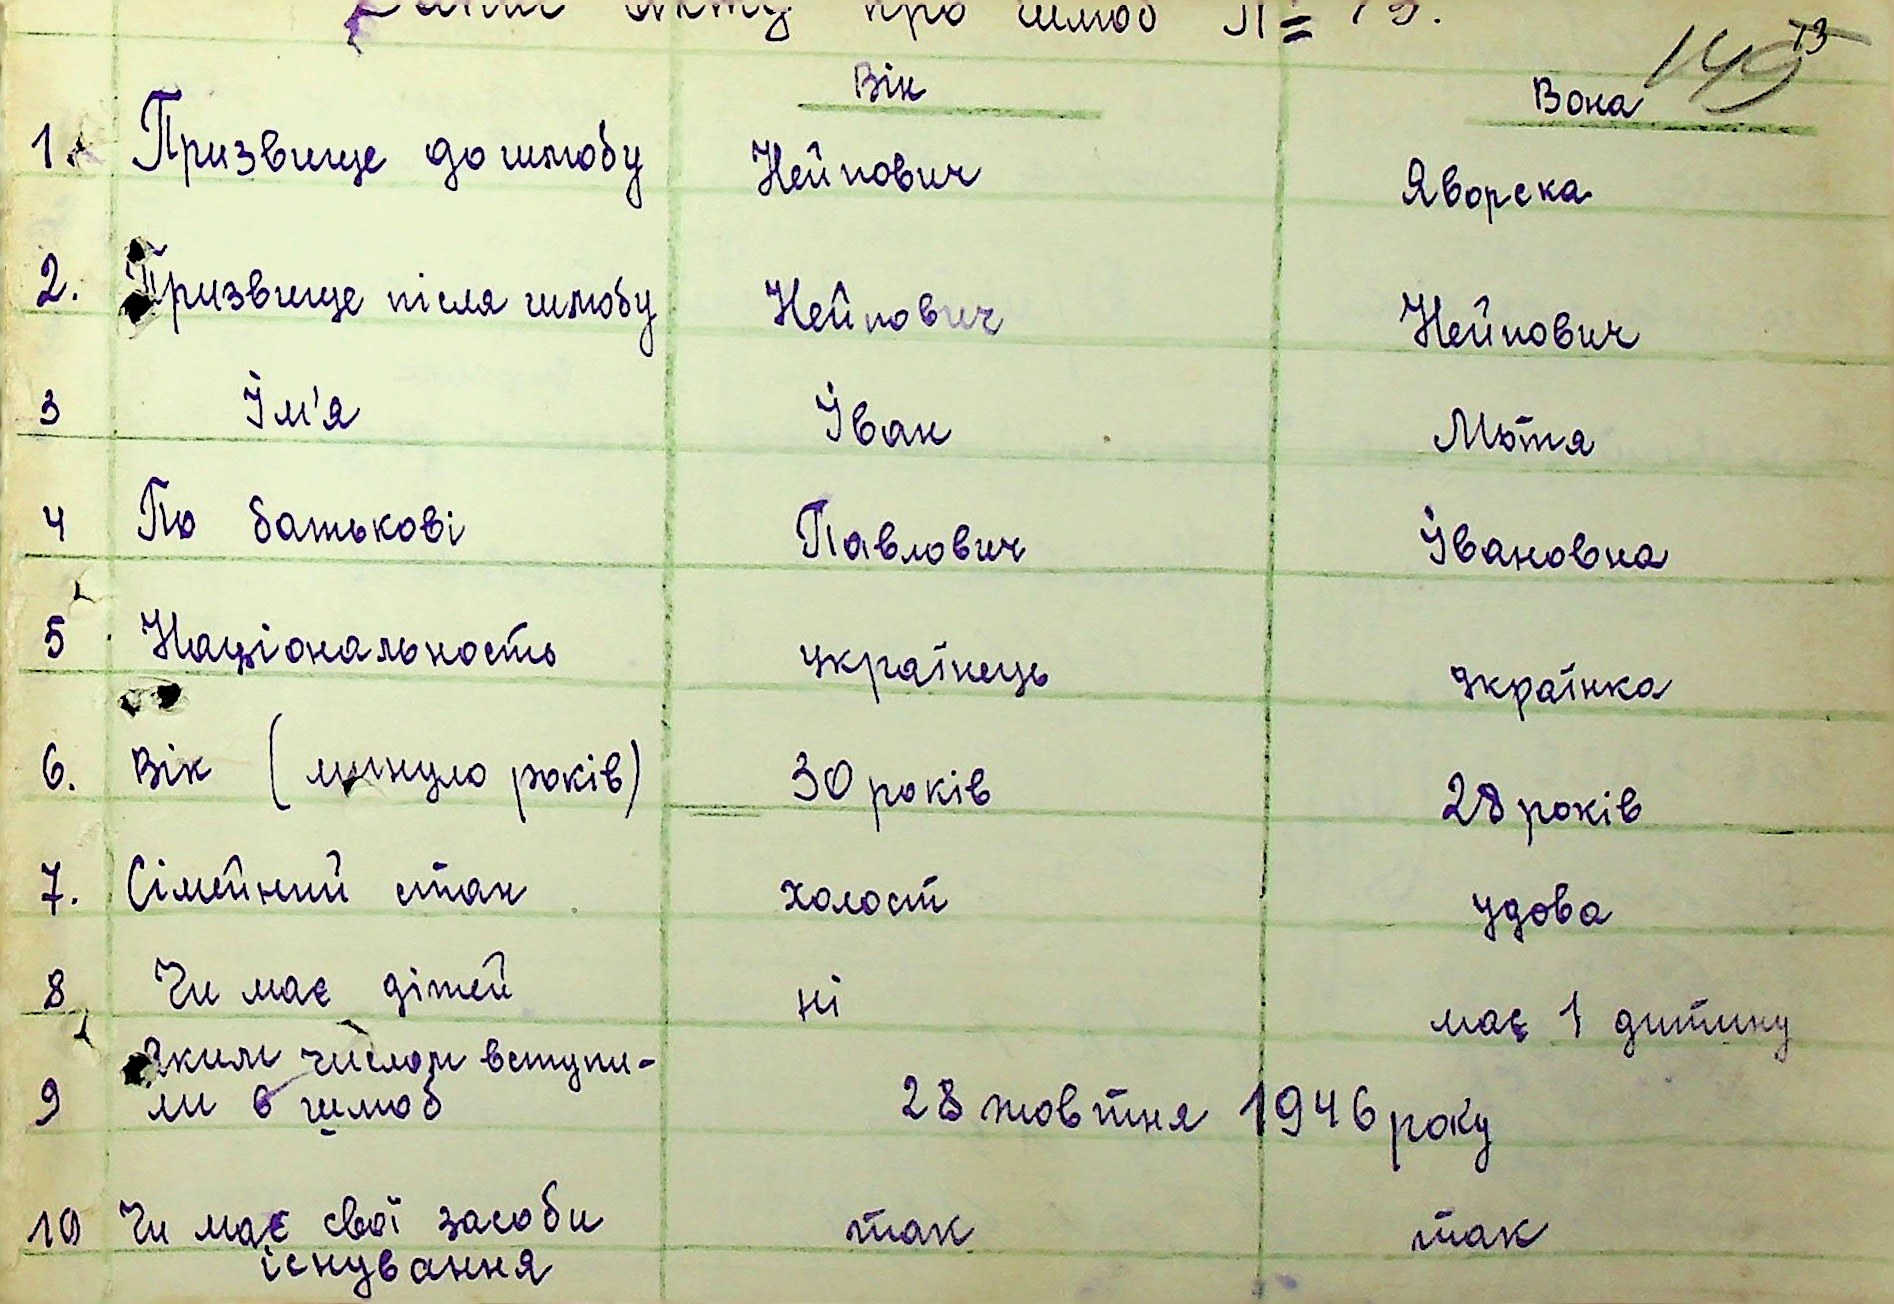 акту про шлюб № 73.
149 73
Вік Вона
1. Призвище до шлюбу Нейпович Яворска
2. Призвище після шлюбу Нейпович Нейпович
3 Їм'я Їван Мотя
4 По батькові Павлович Ївановна
5 Національность українець українка
6. Вік (минуло років) 30 років 28 років
7. Сімейний стан холост удова
8 Чи має дітей ні має 1 дитину
Яким числом вступи-
9 ли в шлюб 28 жовтня 1946 року
10 Чи має свої засоби так так
існування